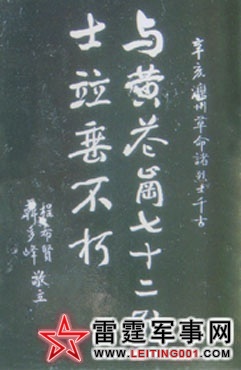 辛亥灤州革命諸烈士千古
与黄花崗七十二烈
士竝垂不朽
程希賢
韓多峰 敬立
雷霆军事网
WWW.LEITING001.COM